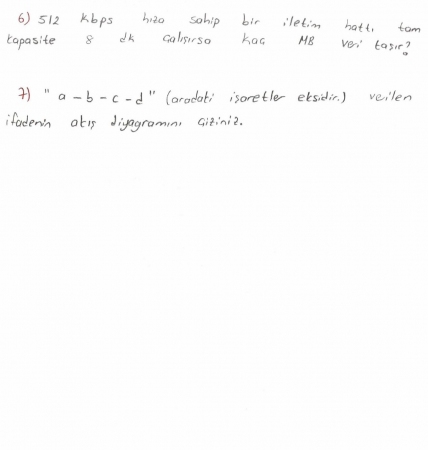 6) 512 kbps hıza sahip bir iletim hattı tam
kapasite 8 dk çalışırsa kaç MB veri taşır?
7) "a-b-c-d" (aradaki işaretler eksidir.) verilen
ifadenin akış diyagramını çiziniz.